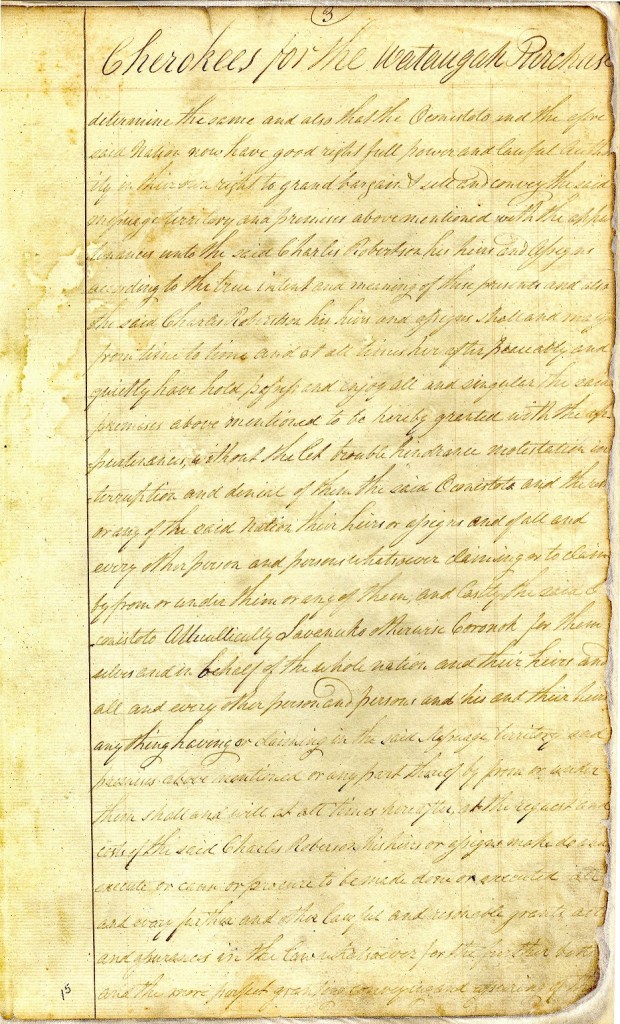 3
Cherokees for the Wataugah Purchas
determine the same and also that the Oconistoto and the afore
said Nation now have good right full power and lawful Autho
ity in their own right to grand bargain & sell and convey the said
mesuage territory and premises above mentioned with the appu
tenances unto the said Charles Robertson his heirs and assigns
according to the true intent and meaning of these presents and also
the said Charles Robertson his heirs and assigns shall and may
from time to time and at all times her after Peaceably and
quietly have hold possess and enjoy all and singular the said
premises above mentioned to be hereby granted with the ap
purtenances, without the Let trouble hindrance molestation in
terruption and denial of them the said Oconistoto and the
or any of the said Nation their heirs or assigns and of all and
every other person and persons whatsoever claiming or to claim
by from or under them or any of them, and Lastly the said O
conistoto Attucullicully Savenuko otherwise Coronoh for them
selves and in behalf of the whole nation and their heirs and
all and every other person and persons and his and their heirs
anything having or claiming in the said Mesuage territory and
premises above mentioned or any part thereof by from or under
them shall and will at all times hereafter, at the request and
costs of the said Charles Roberson his heirs or assigns make do and
execute or cause or procure to be made done or executed all
and every further and other lawful and resonable grants acts
and assurances in the law whatsoever for the further bett
and the more perfect granting conveying and assuring of the
15